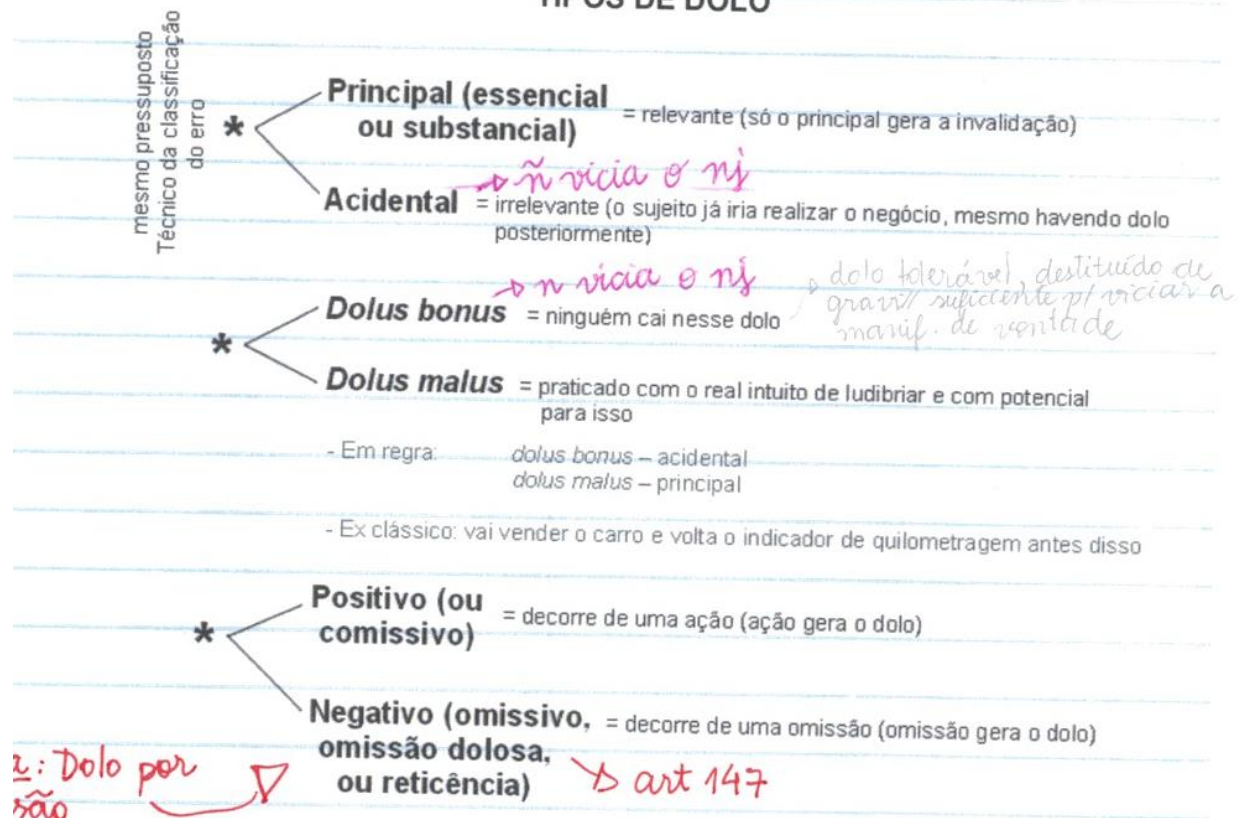 TIPOS DE DOLO
mesmo pressuposto
Técnico da classificação
do erro
* Principal (essencial
ou substancial) = relevante (só o principal gera a invalidação)
→ ñ vicia o nj
Acidental = irrelevante (o sujeito já iria realizar o negócio, mesmo havendo dolo
posteriormente)
→ n vicia o nj
dolo tolerável, destituído de
grav// suficiente p/ viciar a
manif. de vontade
* Dolus bonus = ninguém cai nesse dolo
Dolus malus = praticado com o real intuito de ludibriar e com potencial
para isso
- Em regra: dolus bonus – acidental
dolus malus – principal
- Ex clássico: vai vender o carro e volta o indicador de quilometragem antes disso
* Positivo (ou
comissivo) = decorre de uma ação (ação gera o dolo)
Negativo (omissivo, = decorre de uma omissão (omissão gera o dolo)
omissão dolosa,
ou reticência) → art 147
: Dolo por
são